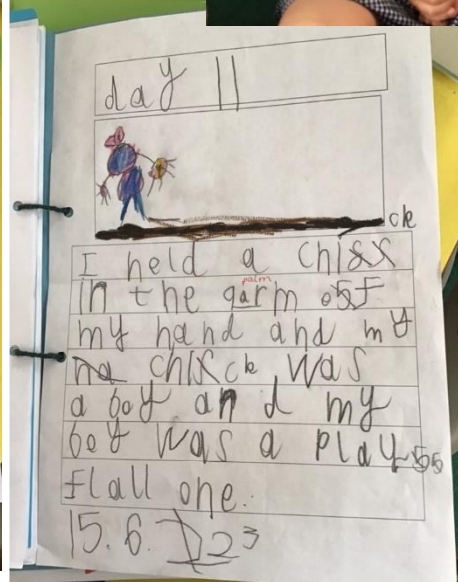 day 11
ck
I held a chisx
palm
in the garm off
my hand and my
chick was
a boy and my
boy was a play
flall one.
15.6. 23